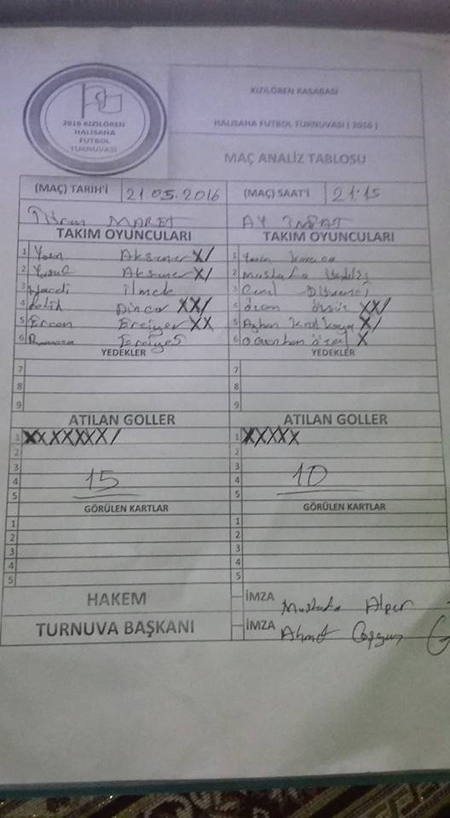 2016 KIZILÖREN
HALISAHA
FUTBOL
TURNUVASI
KIZILÖREN KASABASI
HALISAHA FUTBOL TURNUVASI ( 2016 )
MAÇ ANALİZ TABLOSU
(MAÇ) TARİH'İ 21.05.2016 (MAÇ) SAAT'İ 21:15
MARET AY İNŞAT
TAKIM OYUNCULARI TAKIM OYUNCULARI
1 Aksuner X/ 1 Yasin Karaca
2 Yusuf Aksuner X/ 2 Mustafa
3 Hamdi ilmek 3
4 Fatih Dincer XX/ 4 özcan XX/
5 Ercan Erciyes XX 5 Ayhan X/
6 Erciyes 6 X
YEDEKLER YEDEKLER
7 7
8 8
9 9
ATILAN GOLLER ATILAN GOLLER
1 XXXXXXX/ 1 XXXXX
2 2
3 3
4 15 4 10
5 5
GÖRÜLEN KARTLAR GÖRÜLEN KARTLAR
1 1
2 2
3 3
4 4
5 5
HAKEM İMZA Mustafa Alper
TURNUVA BAŞKANI İMZA Ahmet Coşgun